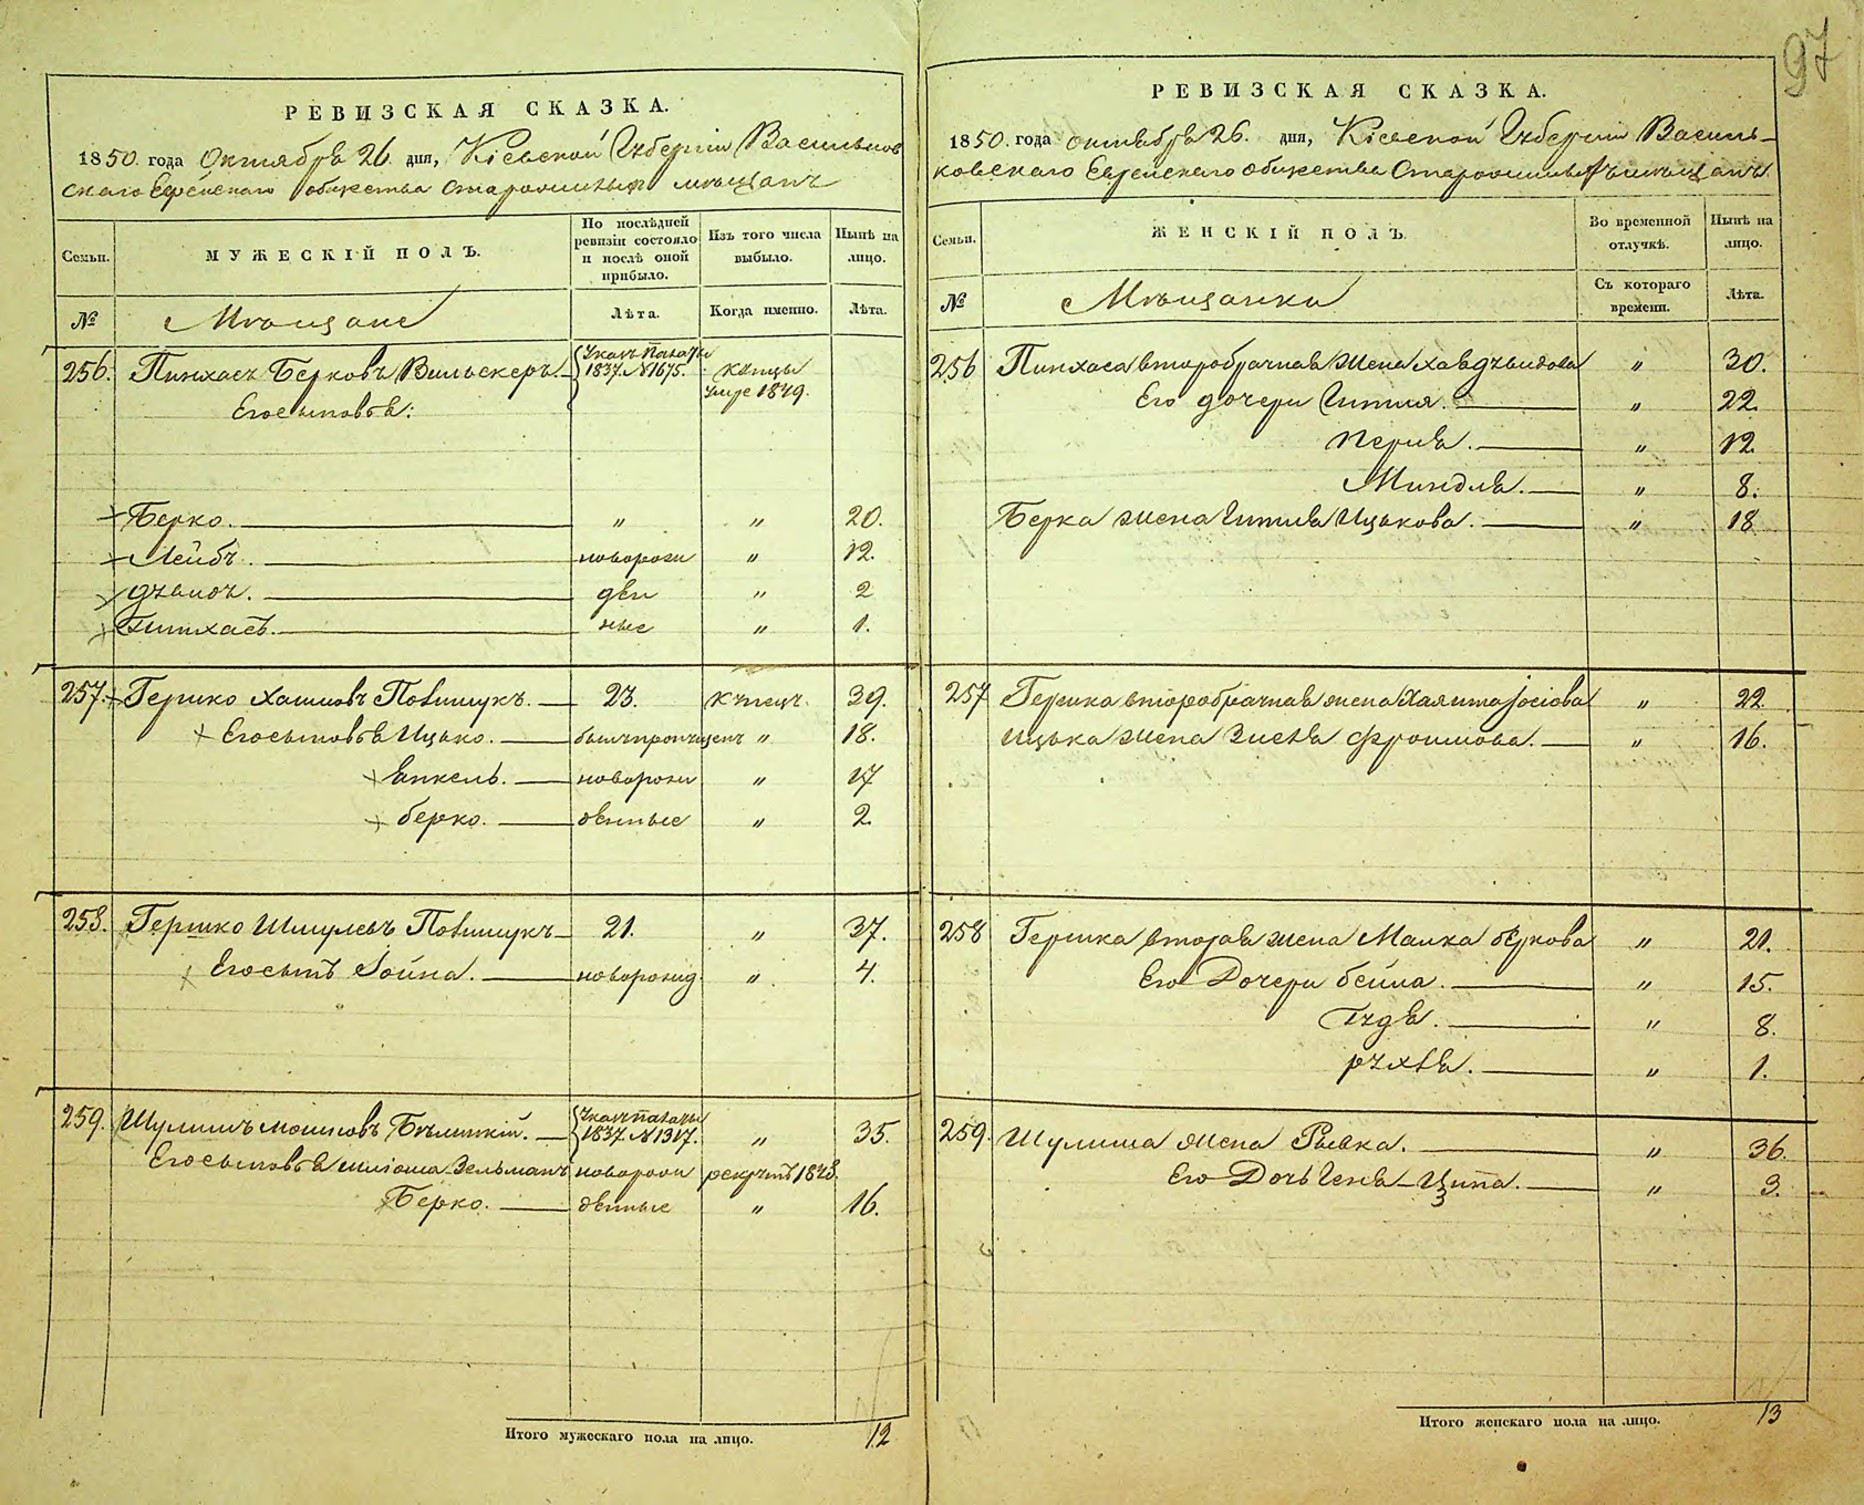 97
РЕВИЗСКАЯ СКАЗКА.
1850. года Октября 26. дня, Кіевской Губерніи Васильков
скаго Еврейскаго общества мѣщанъ
Семьи.
МУЖЕСКІЙ ПОЛЪ.
По послѣдней ревизіи состояло и послѣ оной прибыло.
Изъ того числа выбыло.
Нынѣ на лицо.
№
Мѣщане
Лѣта.
Когда именно.
Лѣта.
256. Пинхасъ Берковъ Вильскеръ. Указъ Палаты 1837. №1675. умре 1849.
Его сыновья:
Берко. " " 20.
Лейбъ. новорож " 12.
ден " 2
Пинхасъ. ные " 1.
257. Гершко Хаимовъ Повшукъ. 23. 39.
Его сыновья Ицько. былъ пропущенъ " 18.
Янкель. новорож " 17
берко. денные " 2.
258. Гершко Шмулевъ Повшукъ 21. " 37.
Его сынъ Іойна. новорожд. " 4.
259. Шулимъ Мошковъ Бѣлицкій. Указъ палаты 1837. №1317. " 35.
Его сыновья Зельманъ новорож рекрутъ 1848.
Берко. денные " 16.
Итого мужескаго пола на лицо. 12
РЕВИЗСКАЯ СКАЗКА.
1850. года октября 26. дня, Кіевской Губерніи Василь-
ковскаго Еврейскаго общества
Семьи.
ЖЕНСКІЙ ПОЛЪ.
Во временной отлучкѣ.
Нынѣ на лицо.
№
Мѣщанки
Съ котораго времени.
Лѣта.
256 Пинхаса второбрачная жена Хая " 30.
Его дочери Гитля. " 22.
Перля. " 12.
Миндля. " 8.
Берка жена Гитля Ицькова. " 18
257 Гершка второбрачная жена Іосіова " 22.
Ицька жена Зисля Фроимова. " 16.
258 Гершка вторая жена Малка беркова " 21.
Его Дочери бейла. " 15.
Гудя. " 8.
рухля. " 1.
259. Шулима жена Рывка. " 36.
Его Дочь Геня-Ципа. " 3.
Итого женскаго пола на лицо. 13